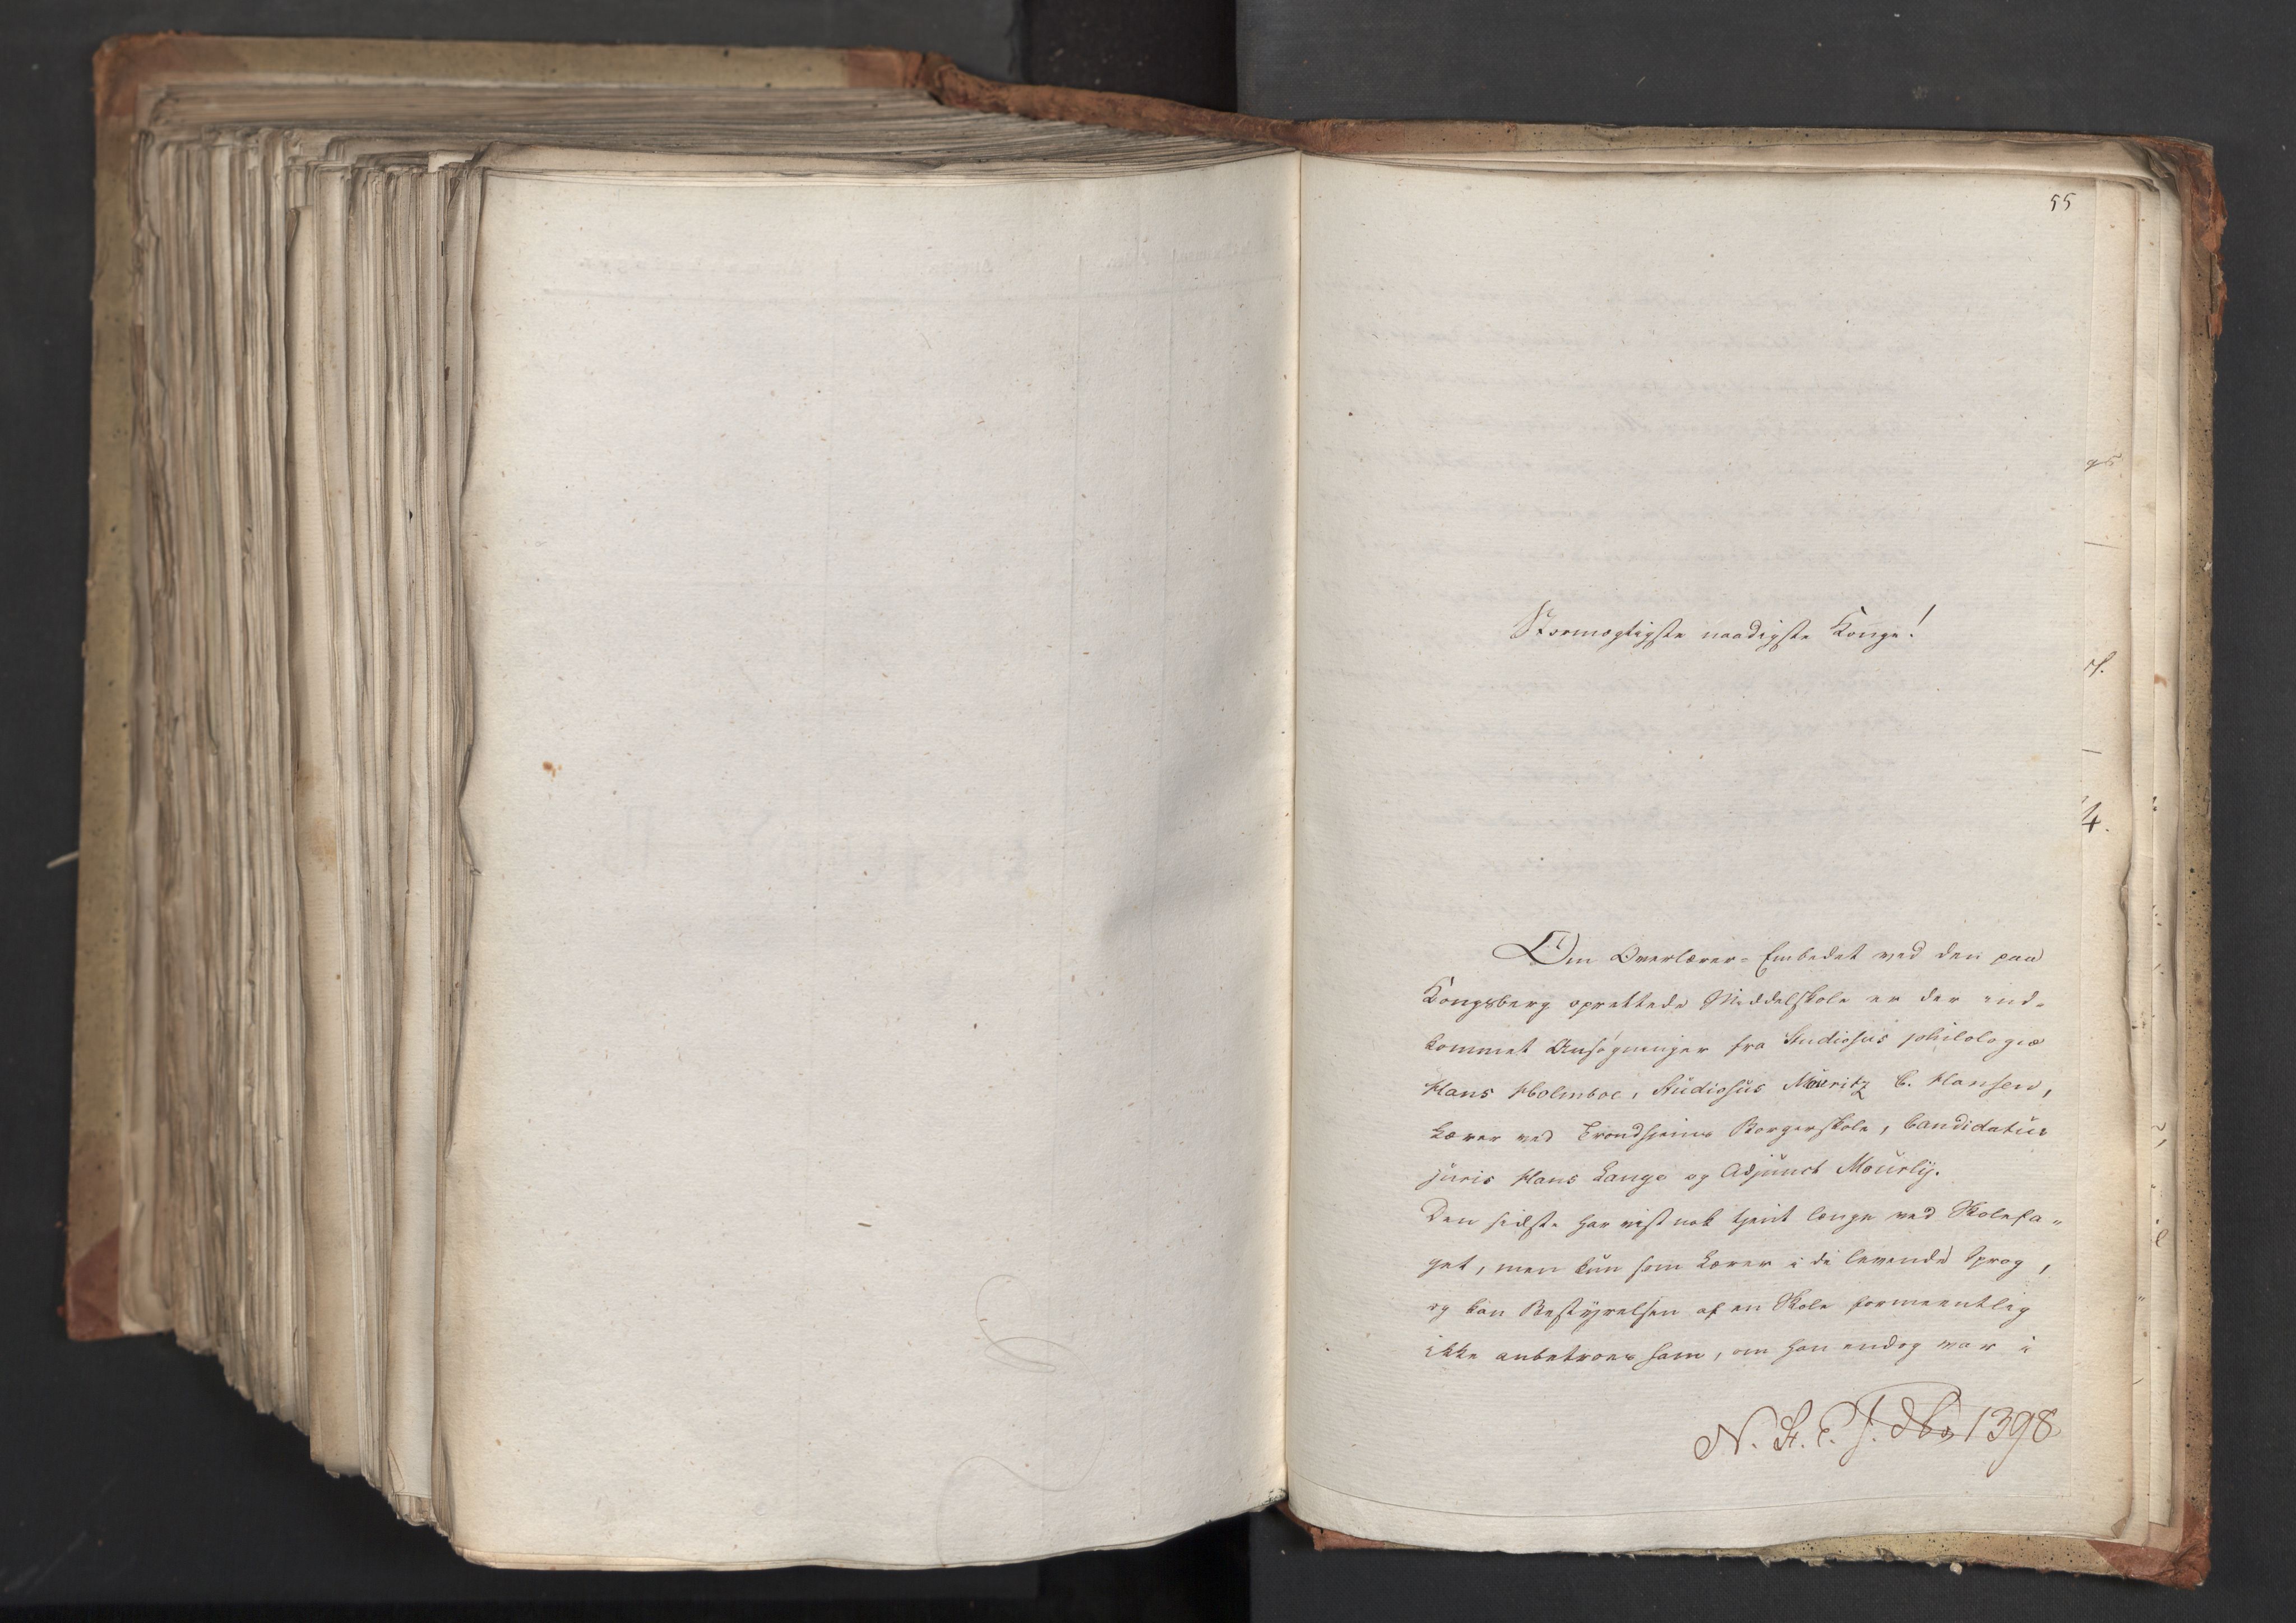 55
Stormægtigste naadigste Konge!
Om Overlærer-Embedet ved den paa
Kongsberg oprettede Middelskole er der ind-
kommet Ansøgninger fra Studiosus philologiæ
Hans Holmboe, Studiosus Mauritz C. Hansen,
Lærer ved Trondhjems Borgerskole, Candidatus
juris Hans Lange og Adjunct Mourly.
Den sidste har vist nok tjent længe ved Skolefa-
get, men kun som Lærer i de levende Sprog,
og kan Bestyrelsen af en Skole formeentlig
ikke anbetroes ham, om han endog var i
N. St. E. J. 1398